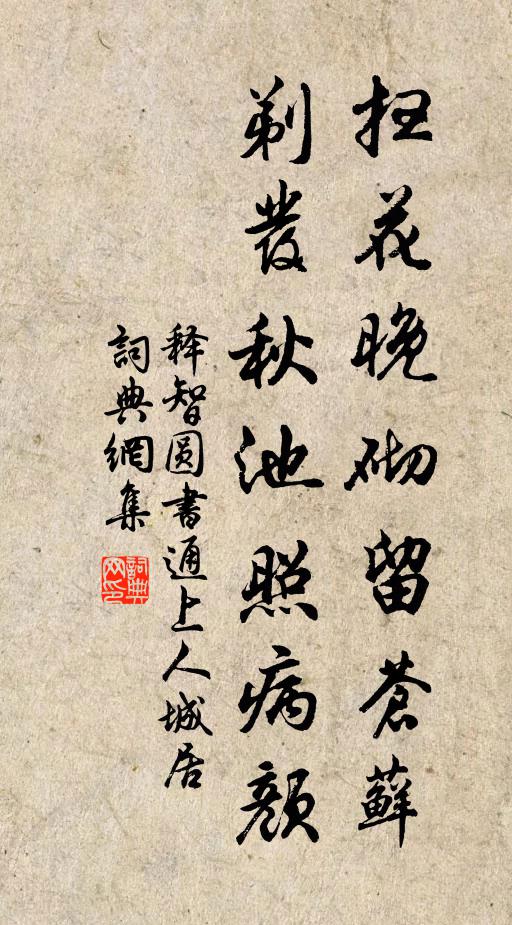 扫花晚砌留苍藓
剃发秋池照病颜
释智圆書通上人城居
詞典網集
詞典網印